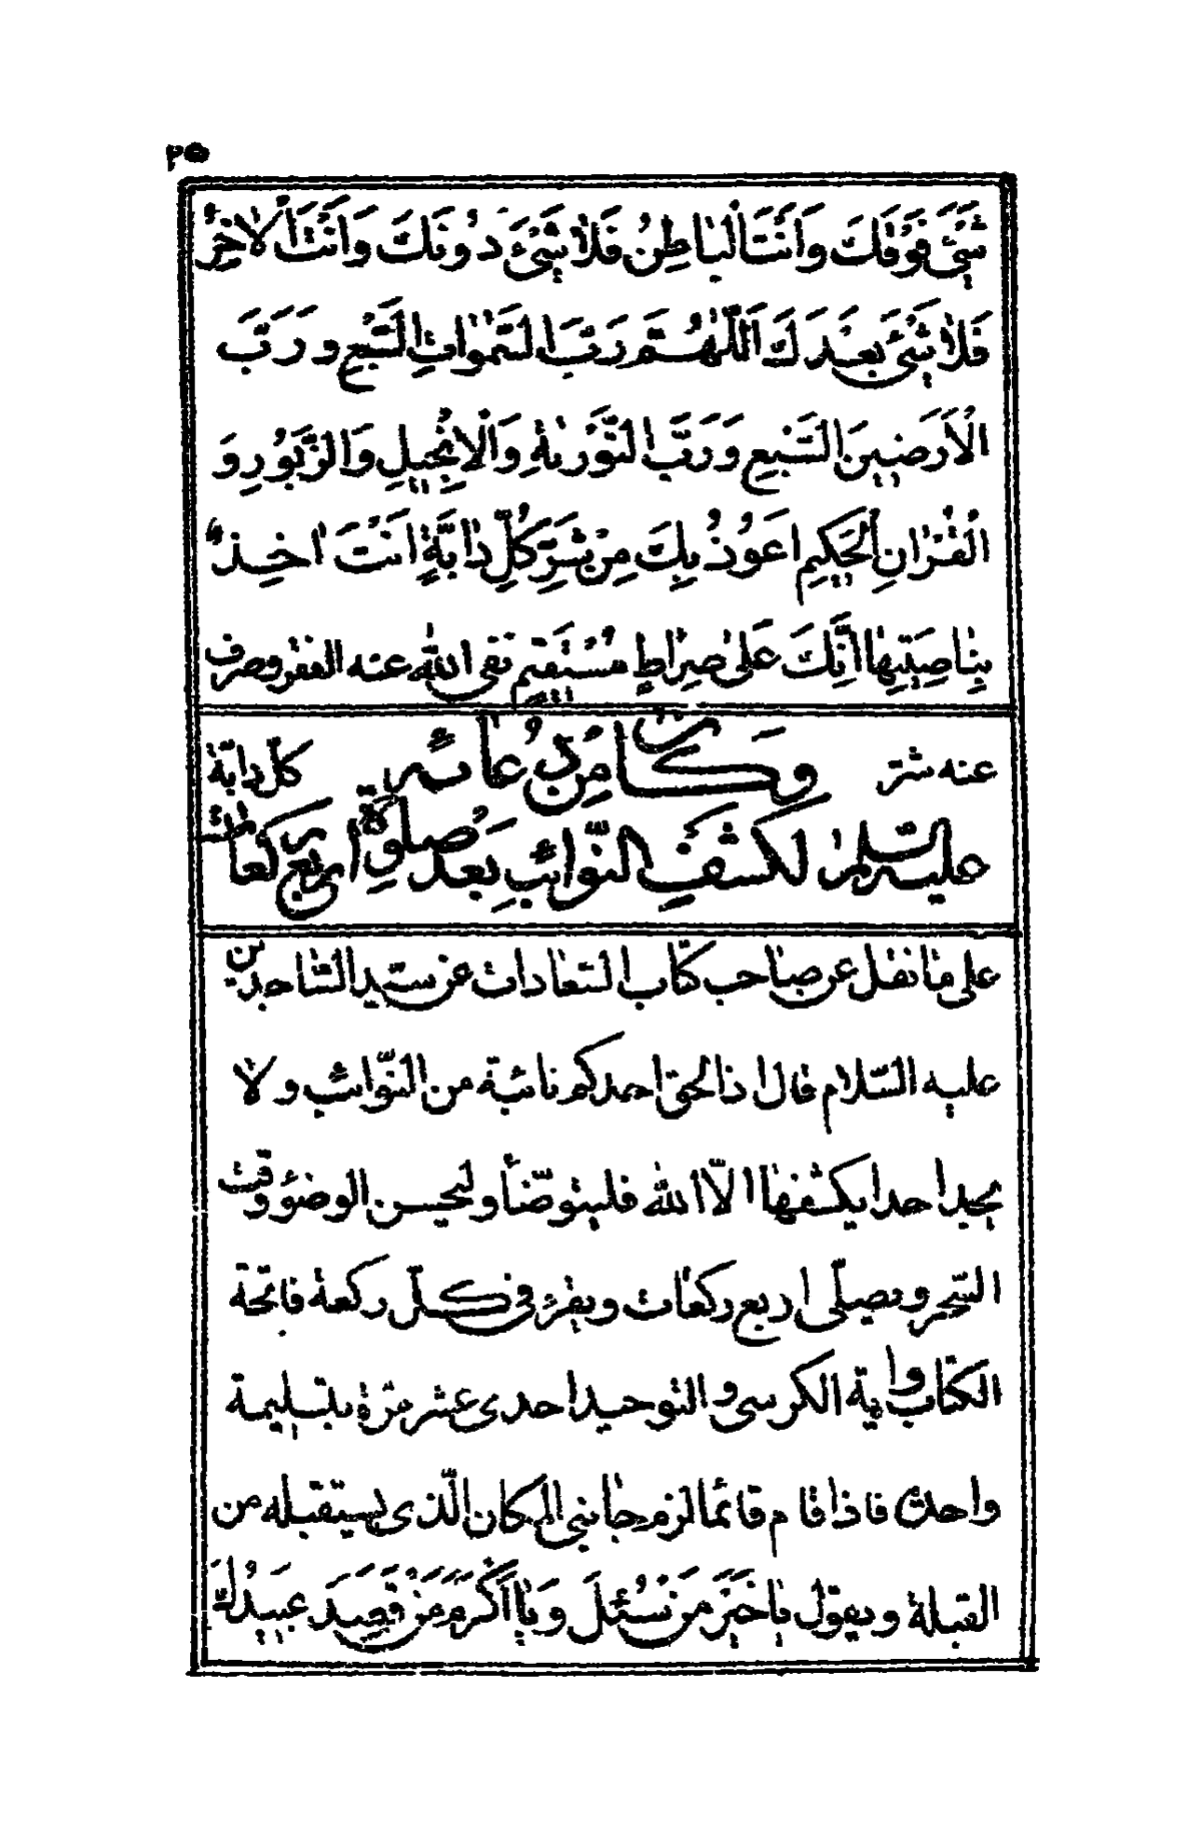 ٢٥
شَيْءَ فَوْقَكَ وَاَنْتَ الْبَاطِنُ فَلَا شَيْءَ دُونَكَ وَاَنْتَ الْاٰخِرُ
فَلَا شَيْءَ بَعْدَكَ اَللّٰهُمَّ رَبَّ السَّمٰوَاتِ السَّبْعِ وَرَبَّ
الْاَرَضِينَ السَّبْعِ وَرَبَّ التَّوْرٰيةِ وَالْاِنْجِيلِ وَالزَّبُورِ وَ
الْقُرْاٰنِ الْحَكِيمِ اَعُوذُ بِكَ مِنْ شَرِّ كُلِّ دَابَّةٍ اَنْتَ اٰخِذٌ
بِنَاصِيَتِهَا اِنَّكَ عَلٰى صِرَاطٍ مُسْتَقِيمٍ نفى الله عنه الفقر وصرف
عنه شرّ كلّ دابّة
وَكَانَ مِنْ دُعَائِهِ
عليه السّلام لكشف النّوائب بعد صلوة اربع ركعات
على ما نقل عن صاحب كتاب السّعادات عن سيّد السّاجدين
عليه السّلام قال اذا لحق احدكم نائبة من النّوائب ولا
يجد احدا يكشفها الّا الله فليتوضّأ وليحسن الوضوء وقت
السّحر ويصلّى اربع ركعات ويقرء فى كلّ ركعة فاتحة
الكتاب واية الكرسى والتوحيد احدى عشر مرّة بتسليمة
واحدة فاذا قام قائما لزم جانبى المكان الّذى يستقبله من
القبلة ويقول يَا خَيْرَ مَنْ سُئِلَ وَيَا اَكْرَمَ مَنْ قَصَدَ عَبِيدُهُ